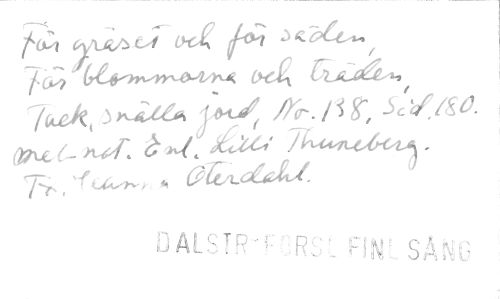 För gräset och för säden,
För blommorna och träden,
Tack, snälla jord, No. 138, Sid. 180.
mel-not. Enl. Lilli Thuneberg.
Fr. Jeanna Oterdahl.
DALSTR FÖRSL FINL SÅNG